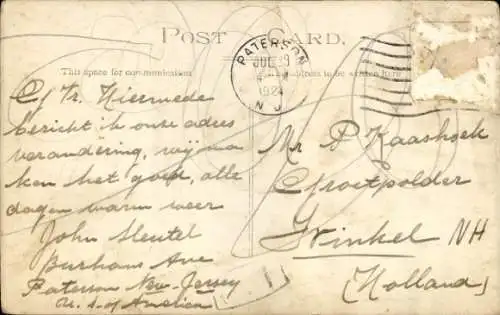 POST CARD.
This space for communication
address to be written here
PATERSON
JUL 19
1924
N J
C/ Vr. Hiermede
bericht ik onze adres
verandering, wij ma
ken het goed, alle
dagen warm weer
John Sleutel
Burhans Ave
Paterson New-Jersey
U. S. of America
Mr P Kaashoek
Groetpolder
Winkel NH
(Holland)